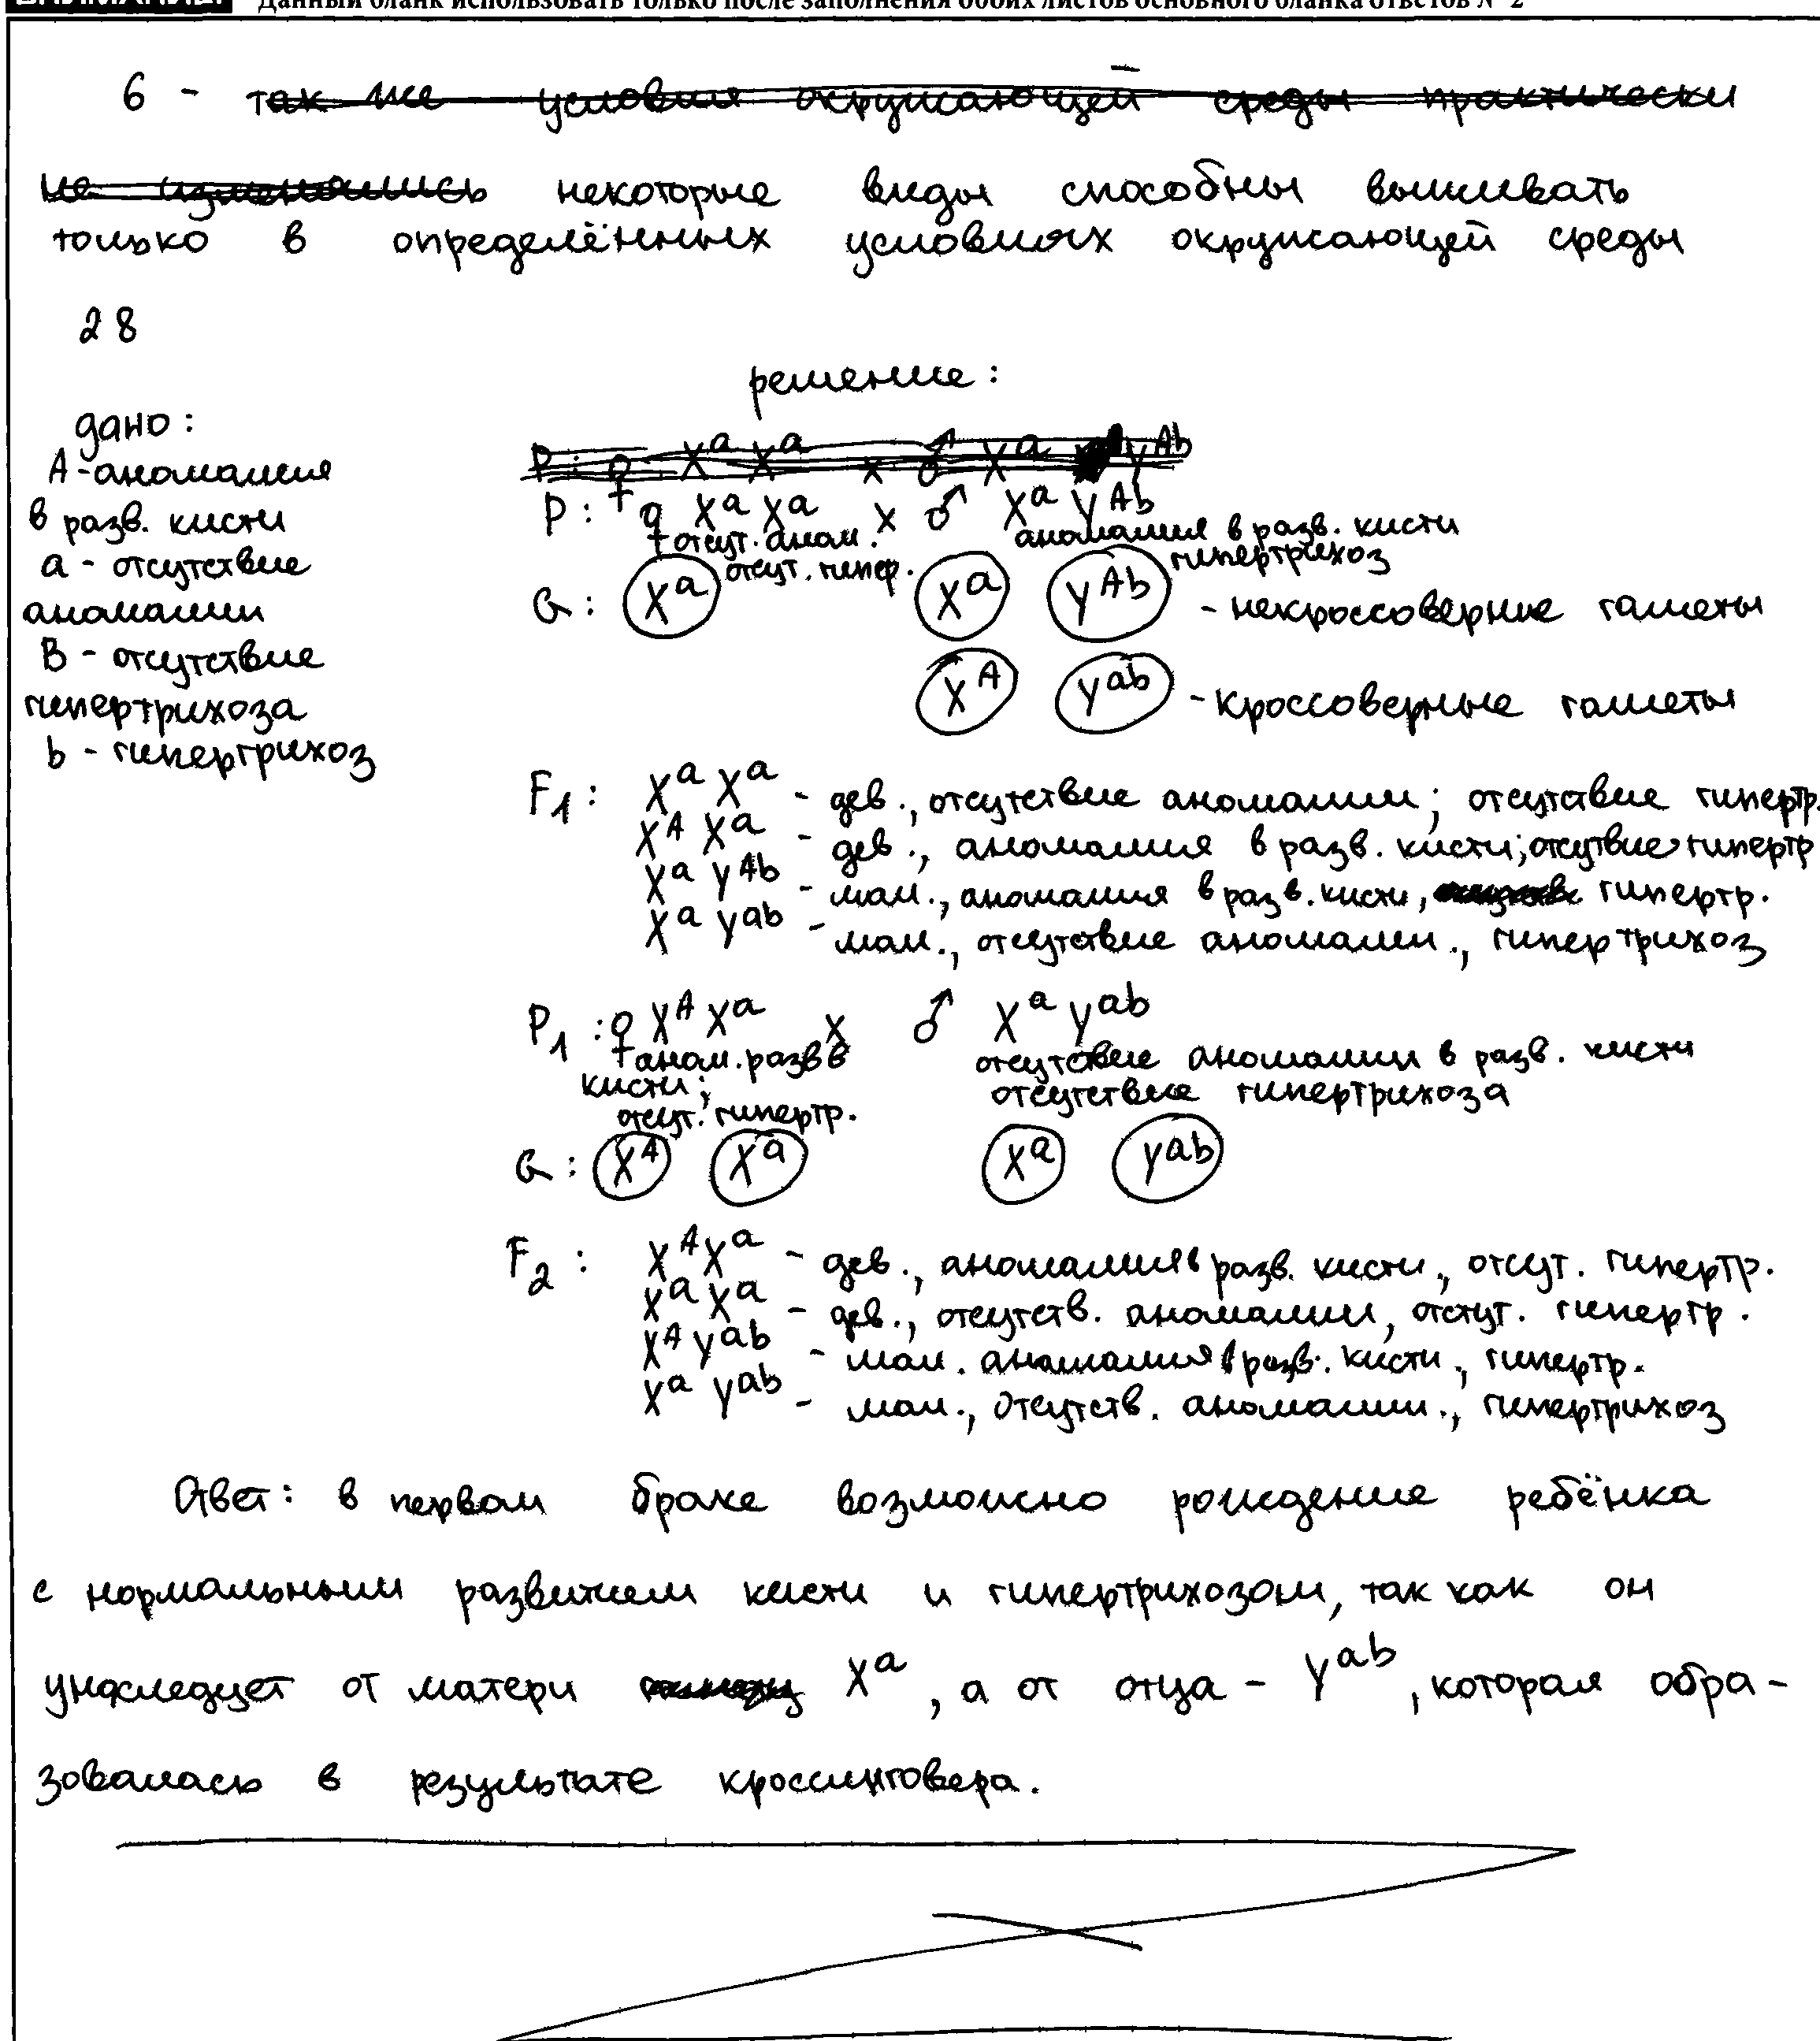 Данный бланк использовать только после заполнения обоих листов основного бланка ответов № 2
6 - так же условия окружающей среды практически
не изменились некоторые виды способны выживать
только в определённых условиях окружающей среды
28
решение:
дано:
A - аномалия
в разв. кисти
a - отсутствие
аномалии
B - отсутствие
гипертрихоза
b - гипертрихоз
P: ♀ X^a X^a x ♂ X^a Y^Ab
P: ♀ X^a X^a x ♂ X^a Y^Ab
отсут. аном. аномалия в разв. кисти
отсут. гипер. гипертрихоз
G: X^a X^a Y^Ab - некроссоверние гаметы
X^A Y^ab - кроссоверные гаметы
F1: X^a X^a - дев., отсутствие аномалии; отсутствие гипертр.
X^A X^a - дев., аномалия в разв. кисти; отсутвие гипертр
X^a Y^Ab - мал., аномалия в разв. кисти, гипертр.
X^a Y^ab - мал., отсутствие аномалии., гипертрихоз
P1: ♀ X^A X^a x ♂ X^a Y^ab
аном. разв в отсутствие аномалии в разв. кисти
кисти; отсутствие гипертрихоза
отсут. гипертр.
G: X^A X^a X^a Y^ab
F2: X^A X^a - дев., аномалия в разв. кисти, отсут. гипертр.
X^a X^a - дев., отсутств. аномалии, отсут. гипертр.
X^A Y^ab - мал. аномалия в разв. кисти, гипертр.
X^a Y^ab - мал., отсутств. аномалии., гипертрихоз
Ответ: в первом браке возможно рождение ребёнка
с нормальным развитием кисти и гипертрихозом, так как он
унаследует от матери X^a, а от отца - Y^ab, которая обра-
зовалась в результате кроссинговера.